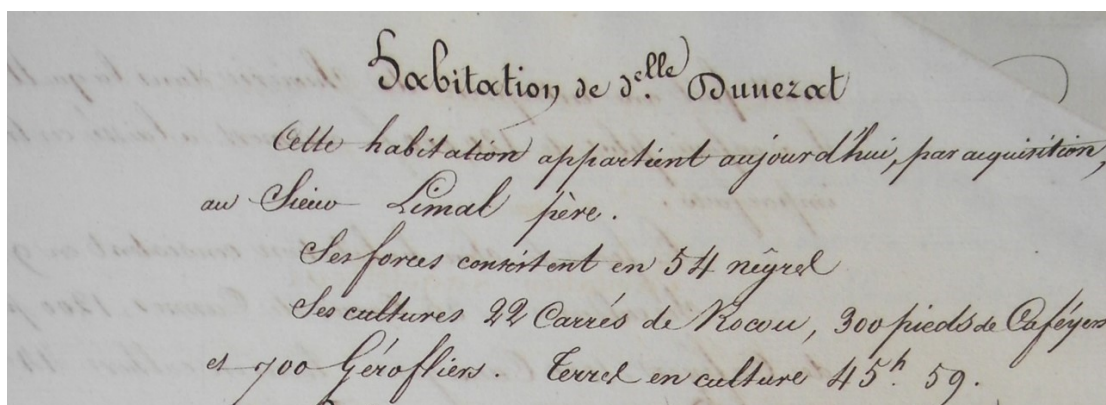 Habitation de d.elle Dunezat
Cette habitation appartient aujourd'hui, par acquisition,
au Sieur Limal père.
Ses forces consistent en 54 nêgres
Ses cultures 22 Carrés de Rocou, 300 pieds de Caféyers
et 700 Gérofliers. Terres en culture 45h. 59.